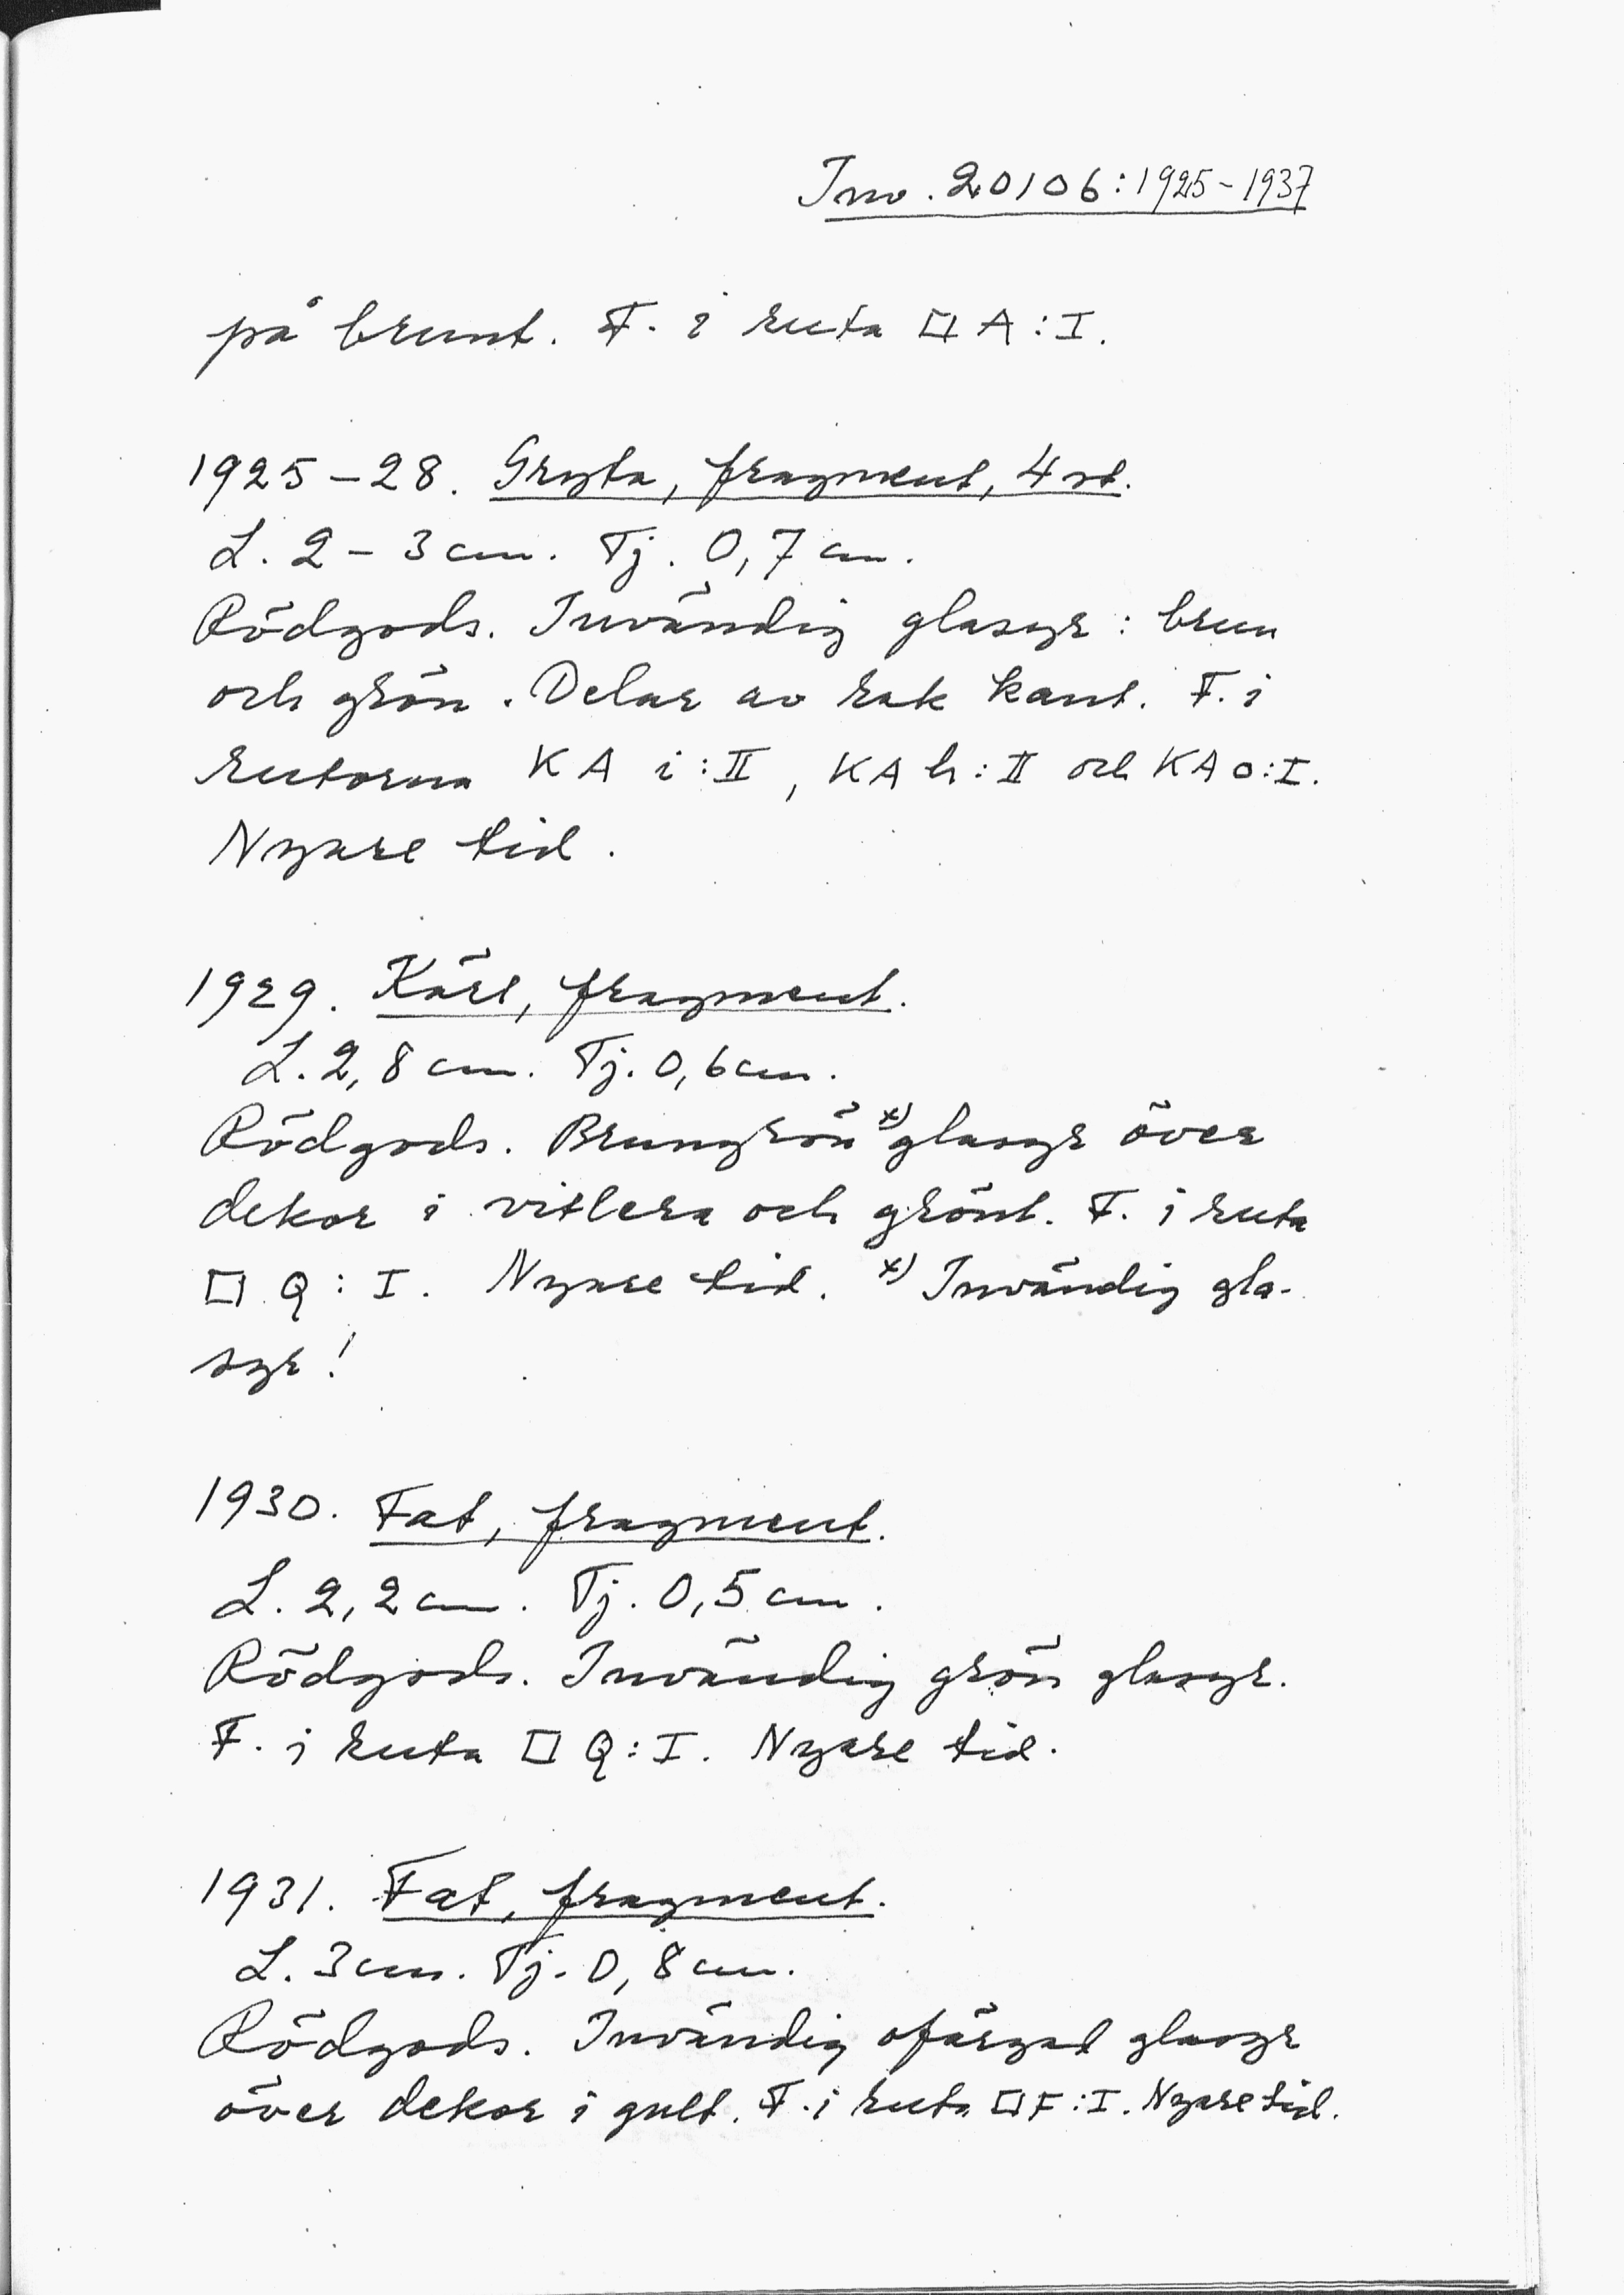 Inv. 20106:1925-1937
på brunt. F. i ruta □ A:I.
1925-28. Gryta, fragment, 4 st.
L. 2-3 cm. Tj. 0,7 cm.
Rödgods. Invändig glasyr: brun
och grön. Delar av rak kant. F. i
rutorna KA i:II, KA h:II och KA o:I.
Nyare tid.
1929. Kärl, fragment.
L. 2,8 cm. Tj. 0,6 cm.
Rödgods. Brungrön x) glasyr över
dekor i vitlera och grönt. F. i ruta
□ Q:I. Nyare tid. x) Invändig gla-
syr!
1930. Fat, fragment.
L. 2,2 cm. Tj. 0,5 cm.
Rödgods. Invändig grön glasyr.
F. i ruta □ Q:I. Nyare tid.
1931. Fat, fragment.
L. 3 cm. Tj. 0,8 cm.
Rödgods. Invändig ofärgad glasyr
över dekor i gult. F. i ruta □ F:I. Nyare tid.